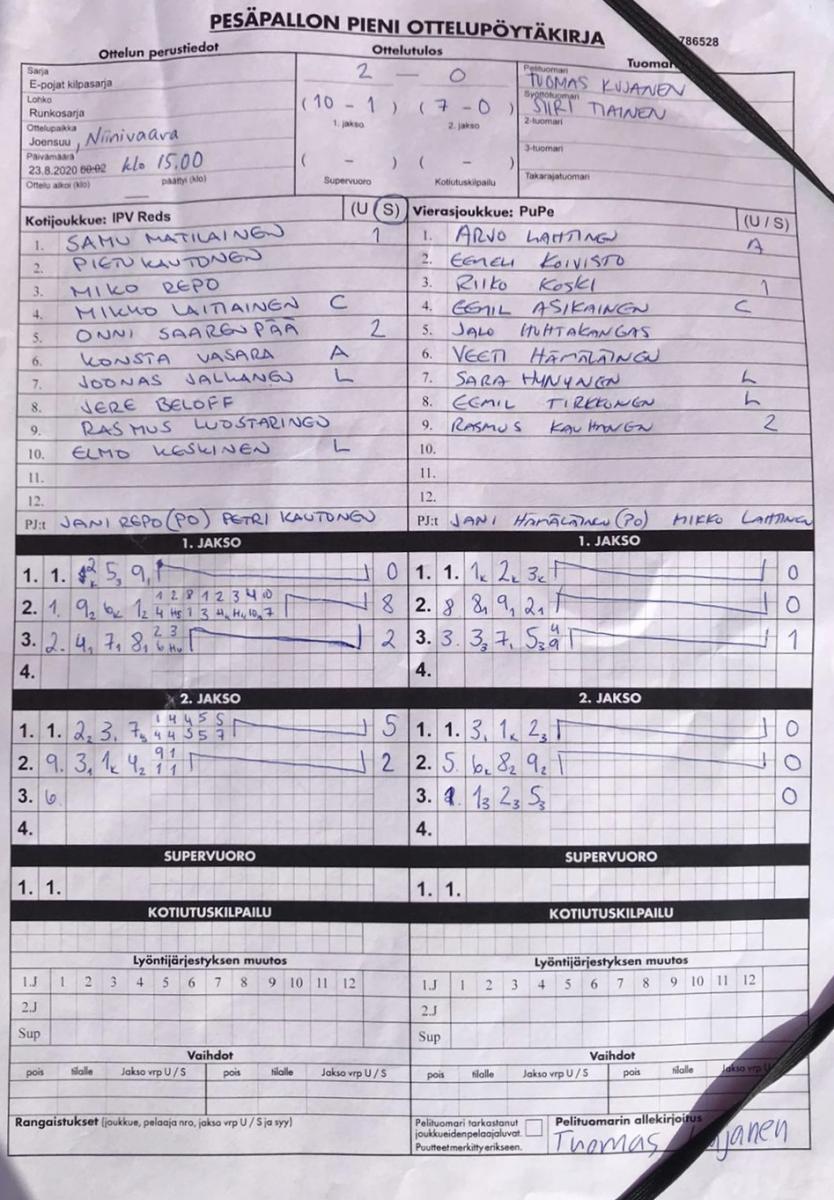 PESÄPALLON PIENI OTTELUPÖYTÄKIRJA
786528
Ottelun perustiedot
Sarja
E-pojat kilpasarja
Lohko
Runkosarja
Ottelupaikka
Joensuu, Niinivaara
Päivämäärä
23.8.2020 00:02 klo 15.00
Ottelu alkoi (klo) päättyi (klo)
Ottelutulos
2 — 0
(10 - 1) (7 - 0)
1. jakso 2. jakso
( - ) ( - )
Supervuoro Kotiutuskilpailu
Tuomar
Pelituomari
TUOMAS KUJANEN
Syöttötuomari
SIIRI TIAINEN
2-tuomari
3-tuomari
Takarajatuomari
Kotijoukkue: IPV Reds (U/S)
1. SAMU MATILAINEN 1
2. PIETU KAUTONEN
3. MIKO REPO
4. MIKKO LAITIAINEN C
5. ONNI SAARENPÄÄ 2
6. KONSTA VASARA A
7. JOONAS JALKANEN L
8. JERE BELOFF
9. RASMUS LUOSTARINEN
10. ELMO KESKINEN L
11.
12.
PJ:t JANI REPO (PO) PETRI KAUTONEN
Vierasjoukkue: PuPe (U/S)
1. ARVO LAHTINEN A
2. EEMELI KOIVISTO
3. RIIKO KOSKI 1
4. EEMIL ASIKAINEN C
5. JALO HUHTAKANGAS
6. VEETI HÄMÄLÄINEN
7. SARA HYNYNEN L
8. EEMIL TIRKKONEN L
9. RASMUS KAUHANEN 2
10.
11.
12.
PJ:t JANI HÄMÄLÄINEN (PO) MIKKO LAHTINEN
1. JAKSO
1. 1. 5₃ 9₁ 0
2. 1. 9₂ 6ₖ 1₂ 8
3. 2. 4₁ 7₁ 8₁ 2
4.
1. JAKSO
1. 1. 1ₖ 2ₖ 3ₖ 0
2. 8 8₁ 9₁ 2₁ 0
3. 3. 3₃ 7₁ 5₃ 1
4.
2. JAKSO
1. 1. 2₂ 3₁ 7₃ 5
2. 9. 3₁ 1ₖ 4₂ 2
3. 6.
4.
2. JAKSO
1. 1. 3₁ 1ₖ 2₃ 0
2. 5. 6ₖ 8₂ 9₂ 0
3. 1₃ 2₃ 5₃ 0
4.
SUPERVUORO
1. 1.
SUPERVUORO
1. 1.
KOTIUTUSKILPAILU
KOTIUTUSKILPAILU
Lyöntijärjestyksen muutos
1.J 1 2 3 4 5 6 7 8 9 10 11 12
2.J
Sup
Lyöntijärjestyksen muutos
1.J 1 2 3 4 5 6 7 8 9 10 11 12
2.J
Sup
Vaihdot
pois tilalle Jakso vrp U / S pois tilalle Jakso vrp U / S
Vaihdot
pois tilalle Jakso vrp U / S pois tilalle Jakso vrp U / S
Rangaistukset (joukkue, pelaaja nro, jakso vrp U / S ja syy)
Pelituomari tarkastanut
joukkueidenpelaajaluvat.
Puutteet merkitty erikseen.
Pelituomarin allekirjoitus
Tuomas Kujanen